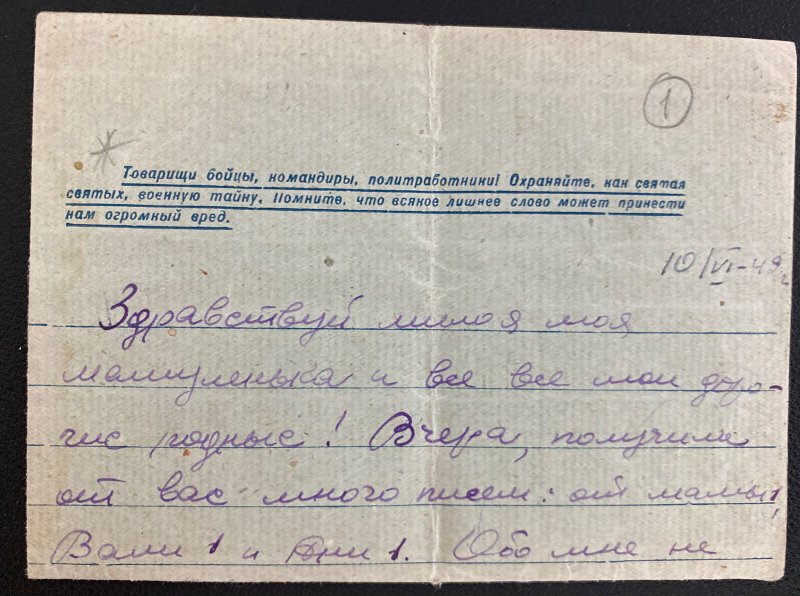 1
Товарищи бойцы, командиры, политработники! Охраняйте, как святая
святых, военную тайну. Помните, что всякое лишнее слово может принести
нам огромный вред.
10/VI-
Здравствуй милая моя
мамуленька и все все мои доро-
гие родные! Вчера, получила
от вас много писем: от мамы 1,
Вали 1 и 1. Обо мне не